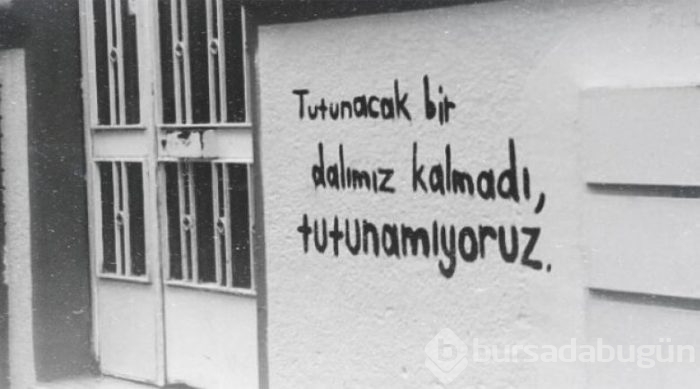 Tutunacak bir
dalımız kalmadı,
tutunamıyoruz.
bursadabugün